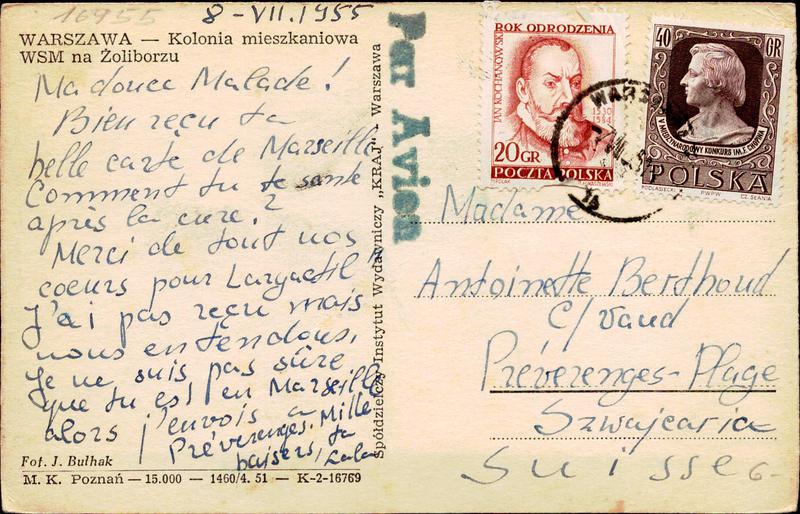 16955
8 - VII. 1955
WARSZAWA — Kolonia mieszkaniowa
WSM na Żoliborzu
Ma douce Malade !
Bien reçu ta
belle carte de Marseille
Comment tu te sante
après la cure ?
Merci de tout nos
coeurs pour Largactil
J'ai pas reçu mais
nous entendous,
Je ne suis pas sûre
que tu est en Marseille
alors j'envois a
Préverenges. Mille
baisers, ta
Lala
Fot. J. Bułhak
M. K. Poznań — 15.000 — 1460/4. 51 — K-2-16769
Spółdzielczy Instytut Wydawniczy „KRAJ” - Warszawa
Par Avion
ROK ODRODZENIA
JAN KOCHANOWSKI
1530
1584
20 GR
POCZTA POLSKA
40 GR
V MIĘDZYNARODOWY KONKURS IM. F. CHOPINA
POLSKA
PODLASECKI PWPW CZ. SŁANIA
WARS
Madame
Antoinette Berthoud
C/ Vaud
Préverenges-Plage
Szwajcaria
Suisse
6-